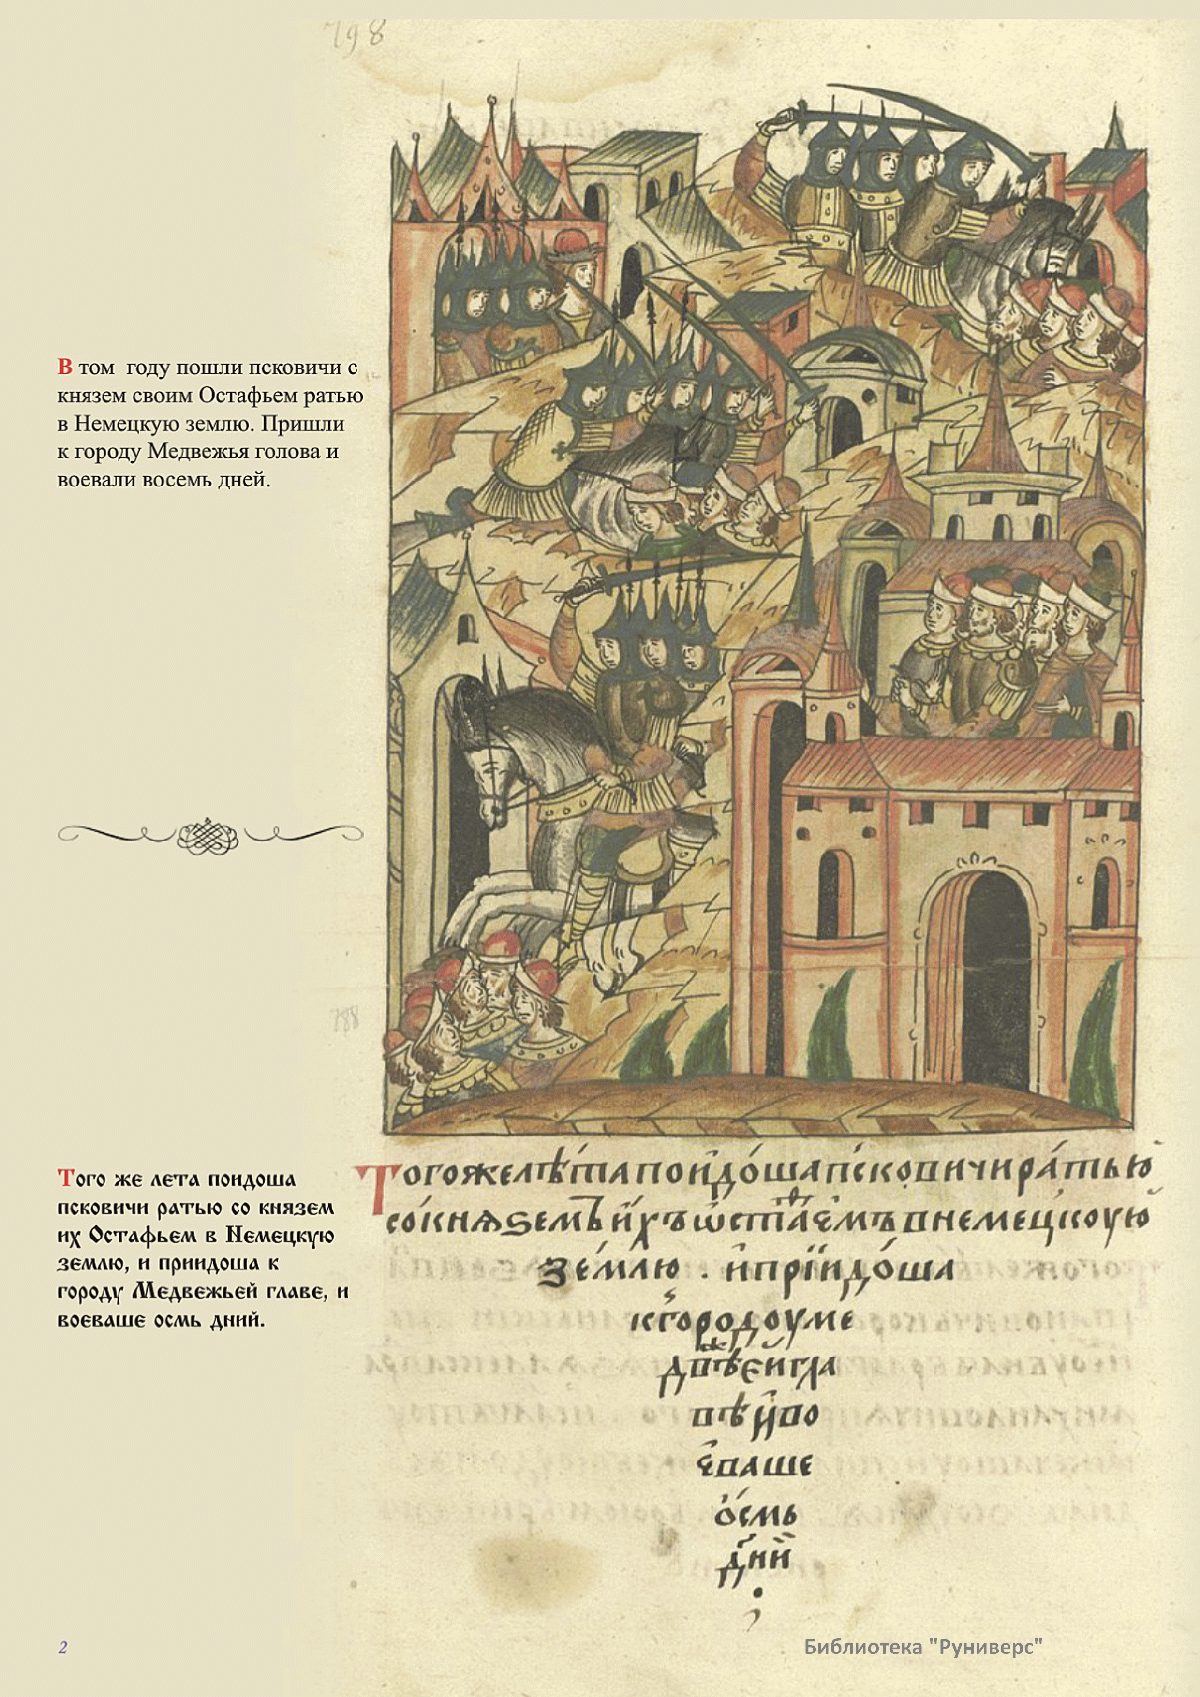 798
В том году пошли псковичи с
князем своим Остафьем ратью
в Немецкую землю. Пришли
к городу Медвежья голова и
воевали восемь дней.
788
Того же лета поидоша
псковичи ратью со князем
их Остафьем в Немецкую
землю, и приидоша к
городу Медвежьей главе, и
воеваше осмь дний.
Тогожелѣтапоидо́шапсковичира́тью
со́кнѧѕемъи́хъѡста́фе́мъвнемецкоую
зе́млю . и́прїидо́ша
кгородоуме
двѣжеигла
вѣ и́во
є́ваше
о́смь
дні́й
2
Библиотека "Руниверс"